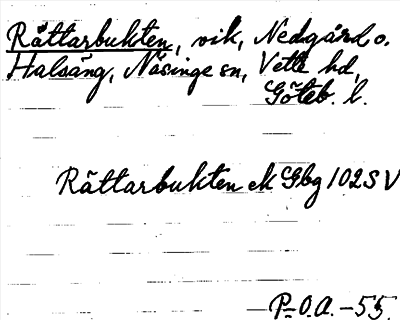 Råttarbukten, vik, Nedgård o.
Halsäng, Näsinge sn, Vette hd,
Göteb. l.
Råttarbukten ek Gbg 102 SV
P-O.A. -55.